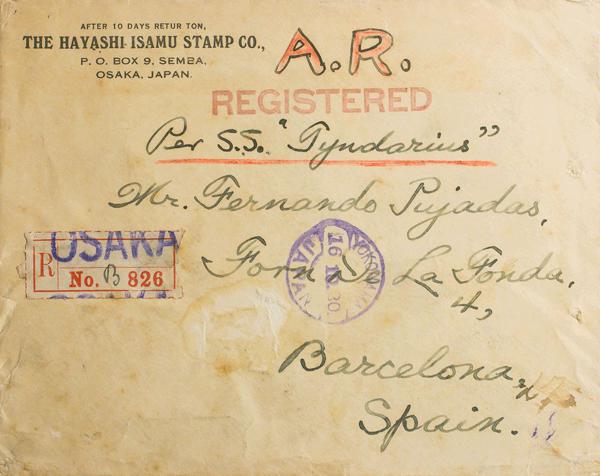 AFTER 10 DAYS RETUR TON,
THE HAYASHI ISAMU STAMP CO.,
P. O. BOX 9, SEMBA,
OSAKA, JAPAN.
A.R.
REGISTERED
Per S.S. "Tyndarius"
Mr. Fernando Pujadas,
OSAKA
R
No. B 826
YOKOHAMA
16.12.30.
JAPAN
Forn De La Fonda,
4,
Barcelona,
Spain.